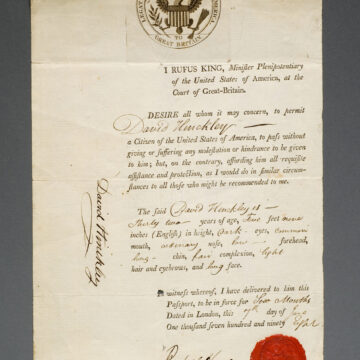 LEGAT AMERICA
TO
GREAT BRITAIN
I RUFUS KING, Minister Plenipotentiary
of the United States of America, at the
Court of Great-Britain.
DESIRE all whom it may concern, to permit
David Hinckley
a Citizen of the United States of America, to pass without
giving or suffering any molestation or hindrance to be given
to him; but, on the contrary, affording him all requisite
assistance and protection, as I would do in similar circum-
stances to all those who might be recommended to me.
The said David Hinckley is
thirty two years of age, five feet nine
inches (English) in height, dark eyes, common
mouth, ordinary nose, low forehead,
long chin, fair complexion, light
hair and eyebrows, and long face.
David Hinckley
In witness whereof, I have delivered to him this
Passport, to be in force for Months
Dated in London, this 7th day of
One thousand seven hundred and ninety Eight